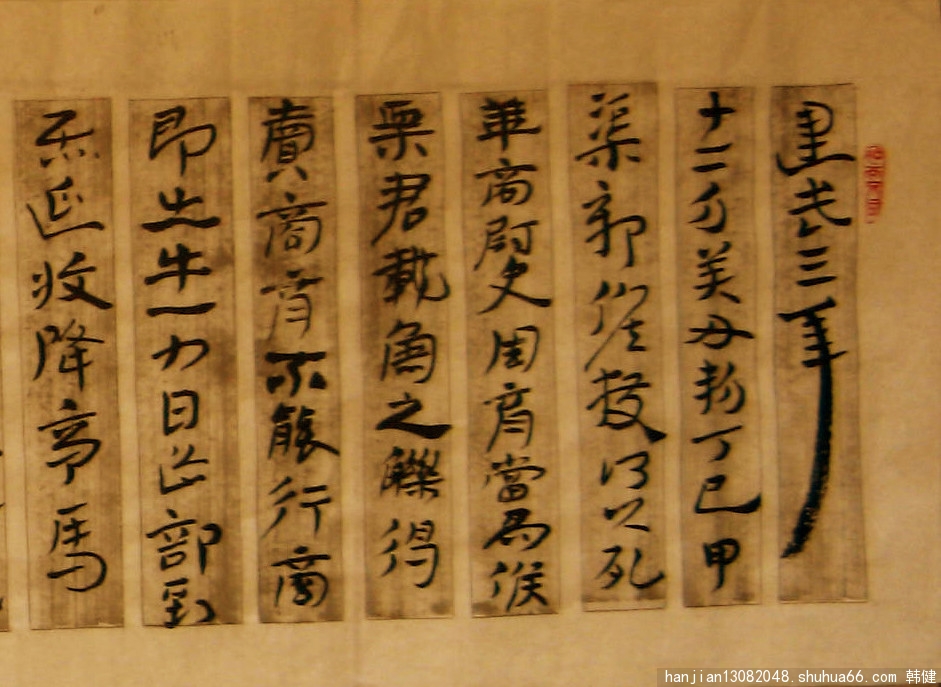 建武三年
十二月癸丑朔丁巳甲
渠鄣候獲叩頭死
華商尉史周育當為候
粟君載魚之觻得
賣商育不能行商
即出牛一 日 部到
收降亭馬
hanjian13082048.shuhua66.com 韩健